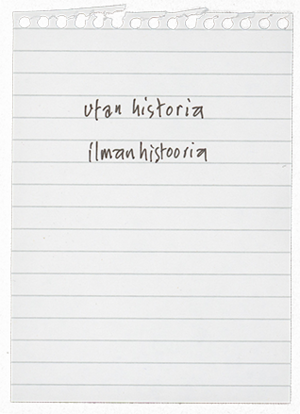 utan historia
ilman histooria